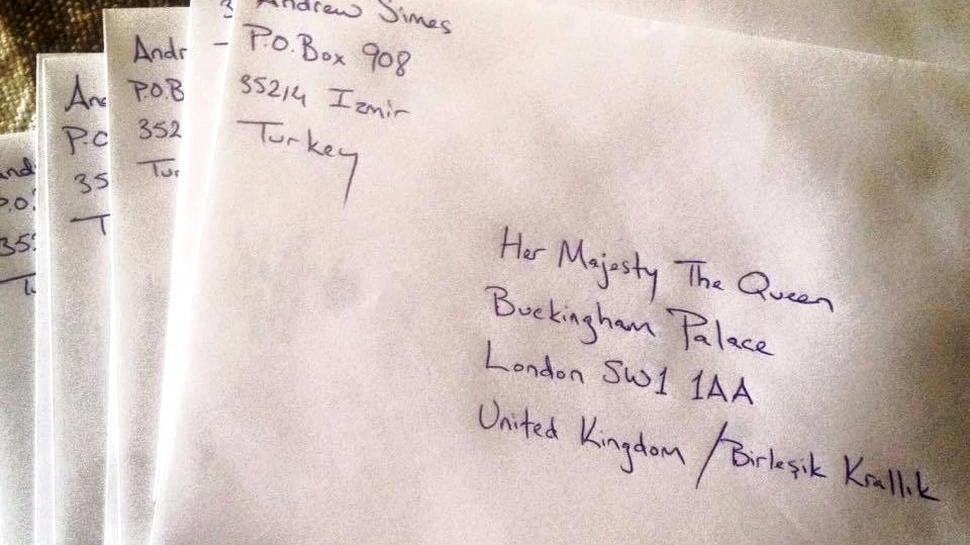 And
P.O.
353
T
And
P.O
35
T
Andr
P.O.B
352
Tur
3
Andrew Simes
P.O.Box 908
35214 Izmir
Turkey
Her Majesty The Queen
Buckingham Palace
London SW1 1AA
United Kingdom / Birleşik Krallık